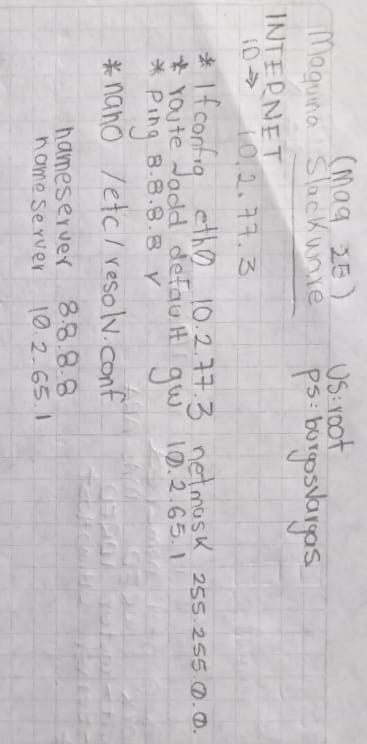 (Maq 25) US: root
Maquina Slackware PS: burgosVargas
INTERNET
iD → 10.2.77.3
* Ifconfig eth0 10.2.77.3 netmask 255.255.0.0.
* route add default gw 10.2.65.1
* Ping 8.8.8.8 ✓
* nano /etc/resolv.conf
nameserver 8.8.8.8
nameserver 10.2.65.1